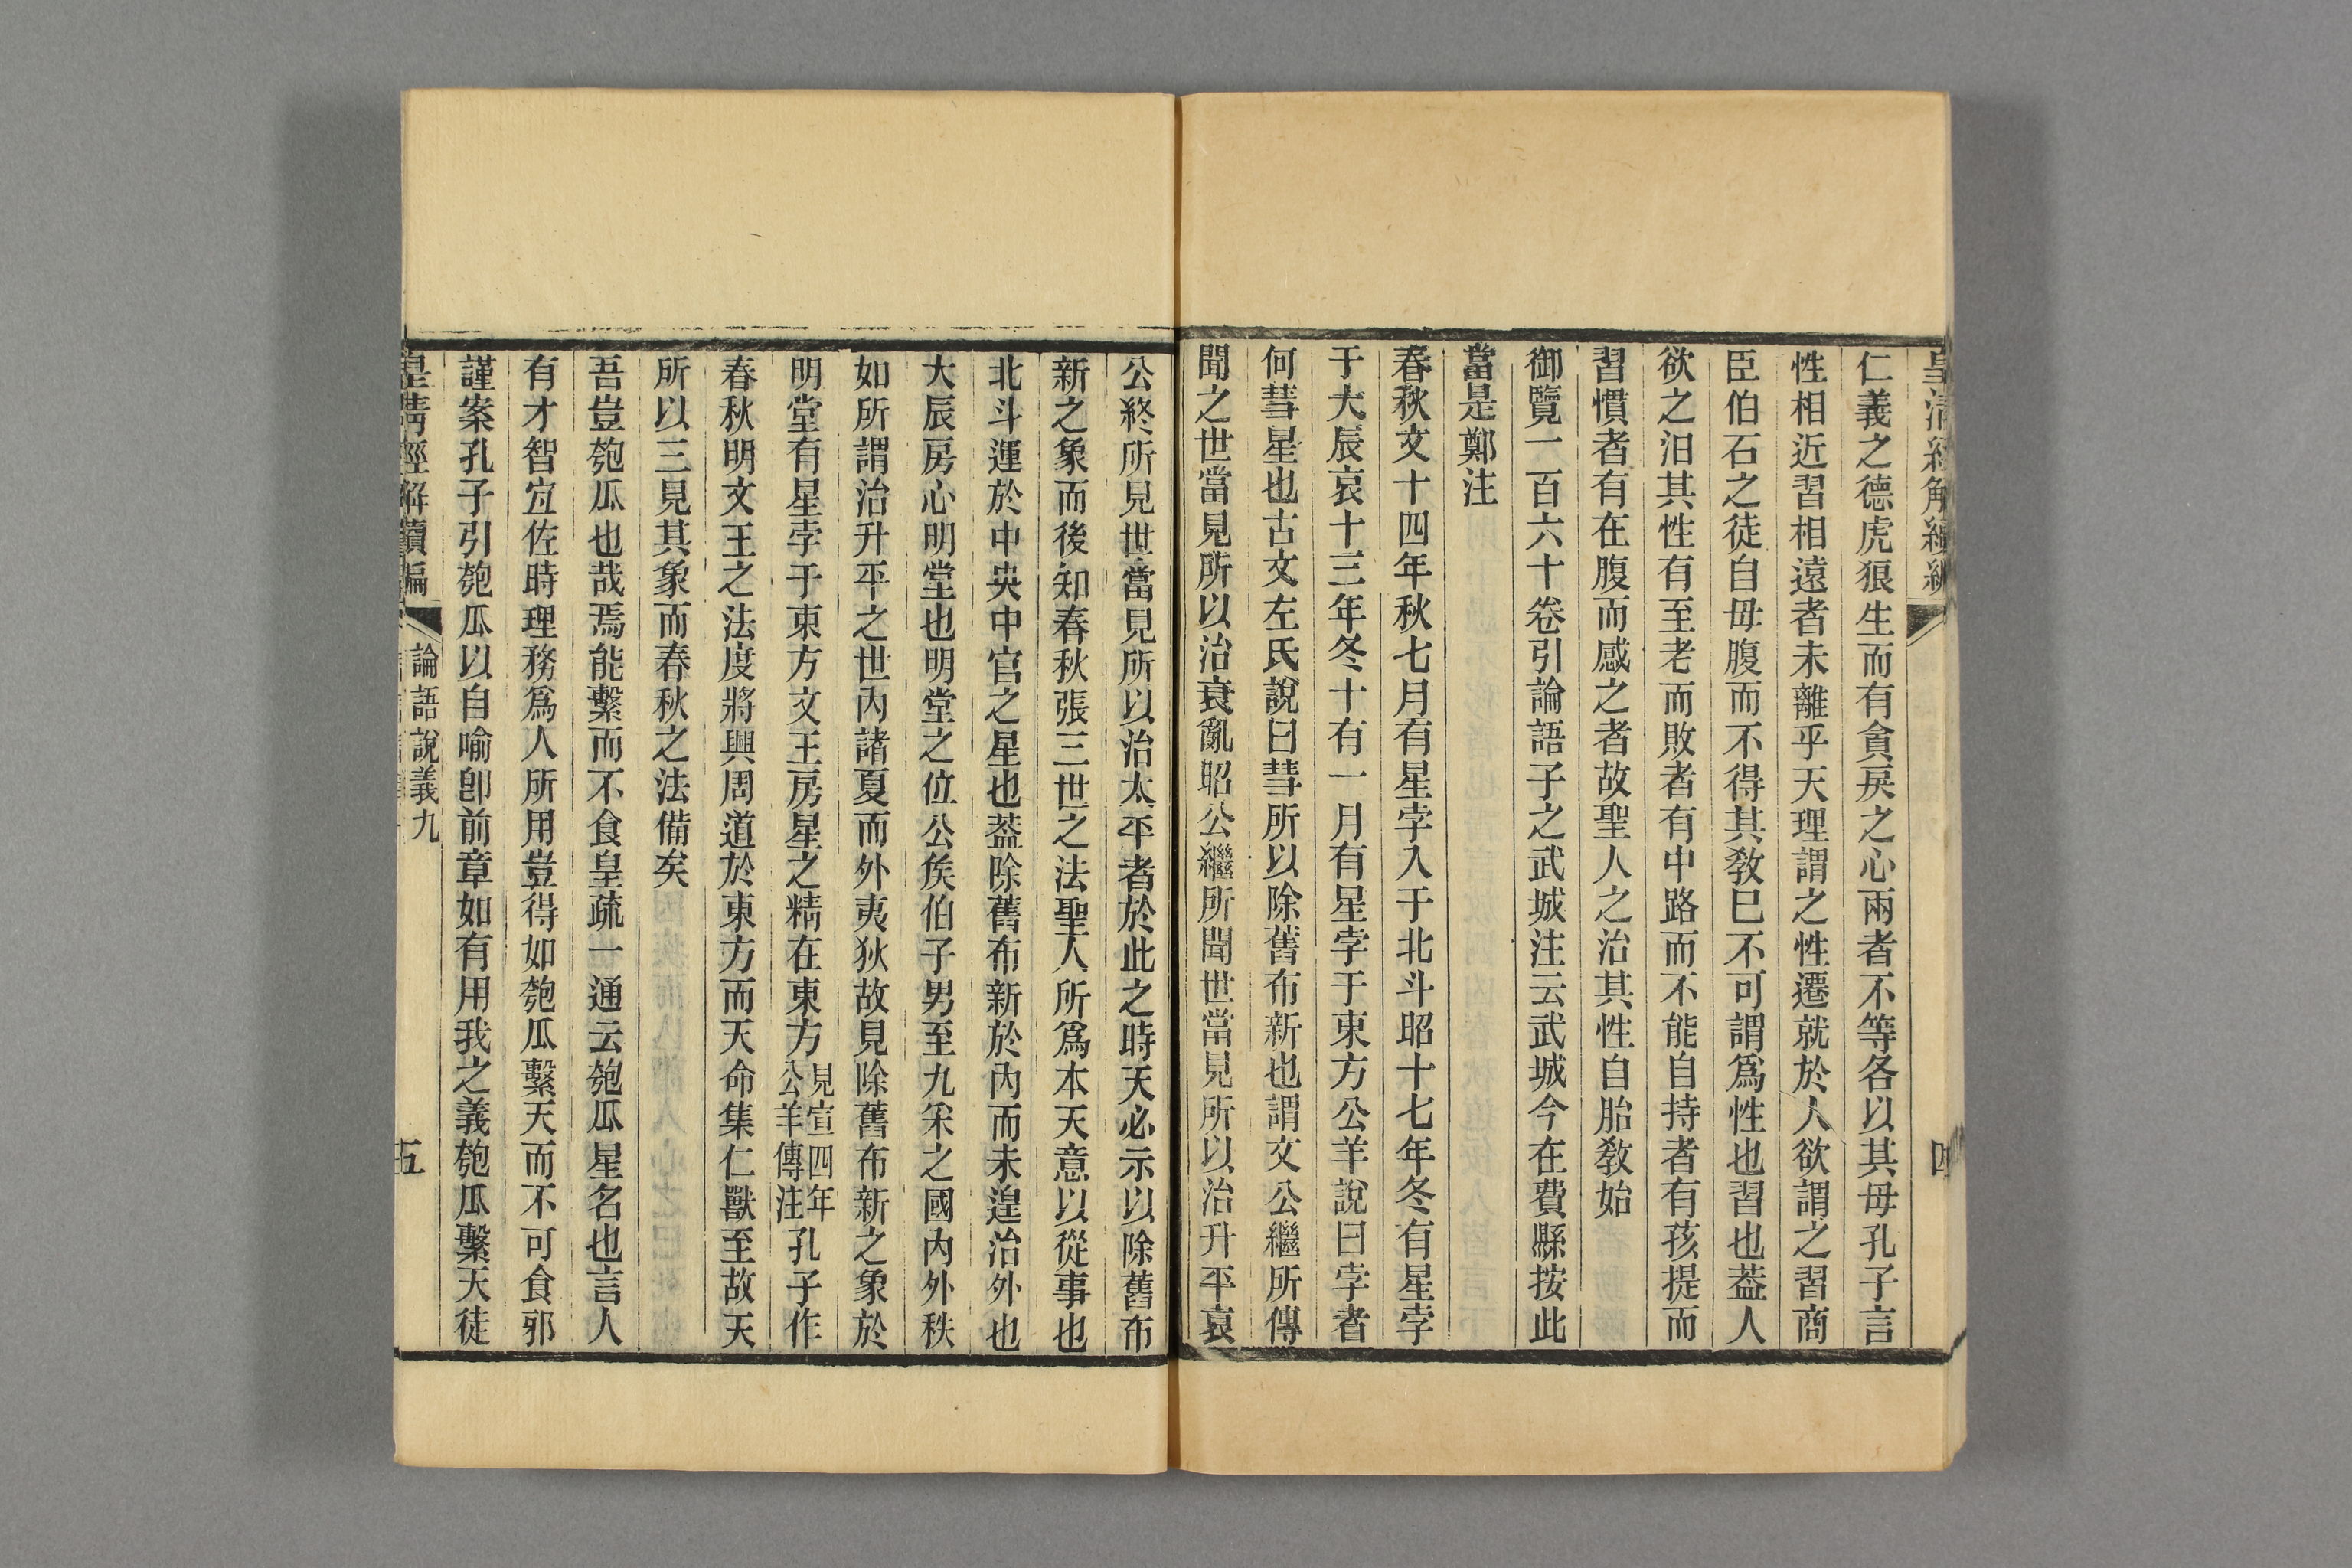 皇清經解續編
四
仁義之德虎狼生而有貪戾之心兩者不等各以其母孔子言
性相近習相遠者未離乎天理謂之性遷就於人欲謂之習商
臣伯石之徒自毋腹而不得其敎巳不可謂爲性也習也葢人
欲之汨其性有至老而敗者有中路而不能自持者有孩提而
習慣者有在腹而感之者故聖人之治其性自胎敎始
御覽一百六十卷引論語子之武城注云武城今在費縣按此
當是鄭注
春秋文十四年秋七月有星孛入于北斗昭十七年冬有星孛
于大辰哀十三年冬十有一月有星孛于東方公羊說曰孛者
何彗星也古文左氏說曰彗所以除舊布新也謂文公繼所傳
聞之世當見所以治衰亂昭公繼所聞世當見所以治升平哀
公終所見世當見所以治太平者於此之時天必示以除舊布
新之象而後知春秋張三世之法聖人所爲本天意以從事也
北斗運於中央中官之星也葢除舊布新於內而未遑治外也
大辰房心明堂也明堂之位公矦伯子男至九采之國內外秩
如所謂治升平之世內諸夏而外夷狄故見除舊布新之象於
明堂有星孛于東方文王房星之精在東方見宣四年公羊傳注孔子作
春秋明文王之法度將興周道於東方而天命集仁獸至故天
所以三見其象而春秋之法備矣
吾豈匏瓜也哉焉能繫而不食皇疏一通云匏瓜星名也言人
有才智宜佐時理務爲人所用豈得如匏瓜繫天而不可食邪
謹案孔子引匏瓜以自喻卽前章如有用我之義匏瓜繫天徒
皇清經解續編
論語說義九
五